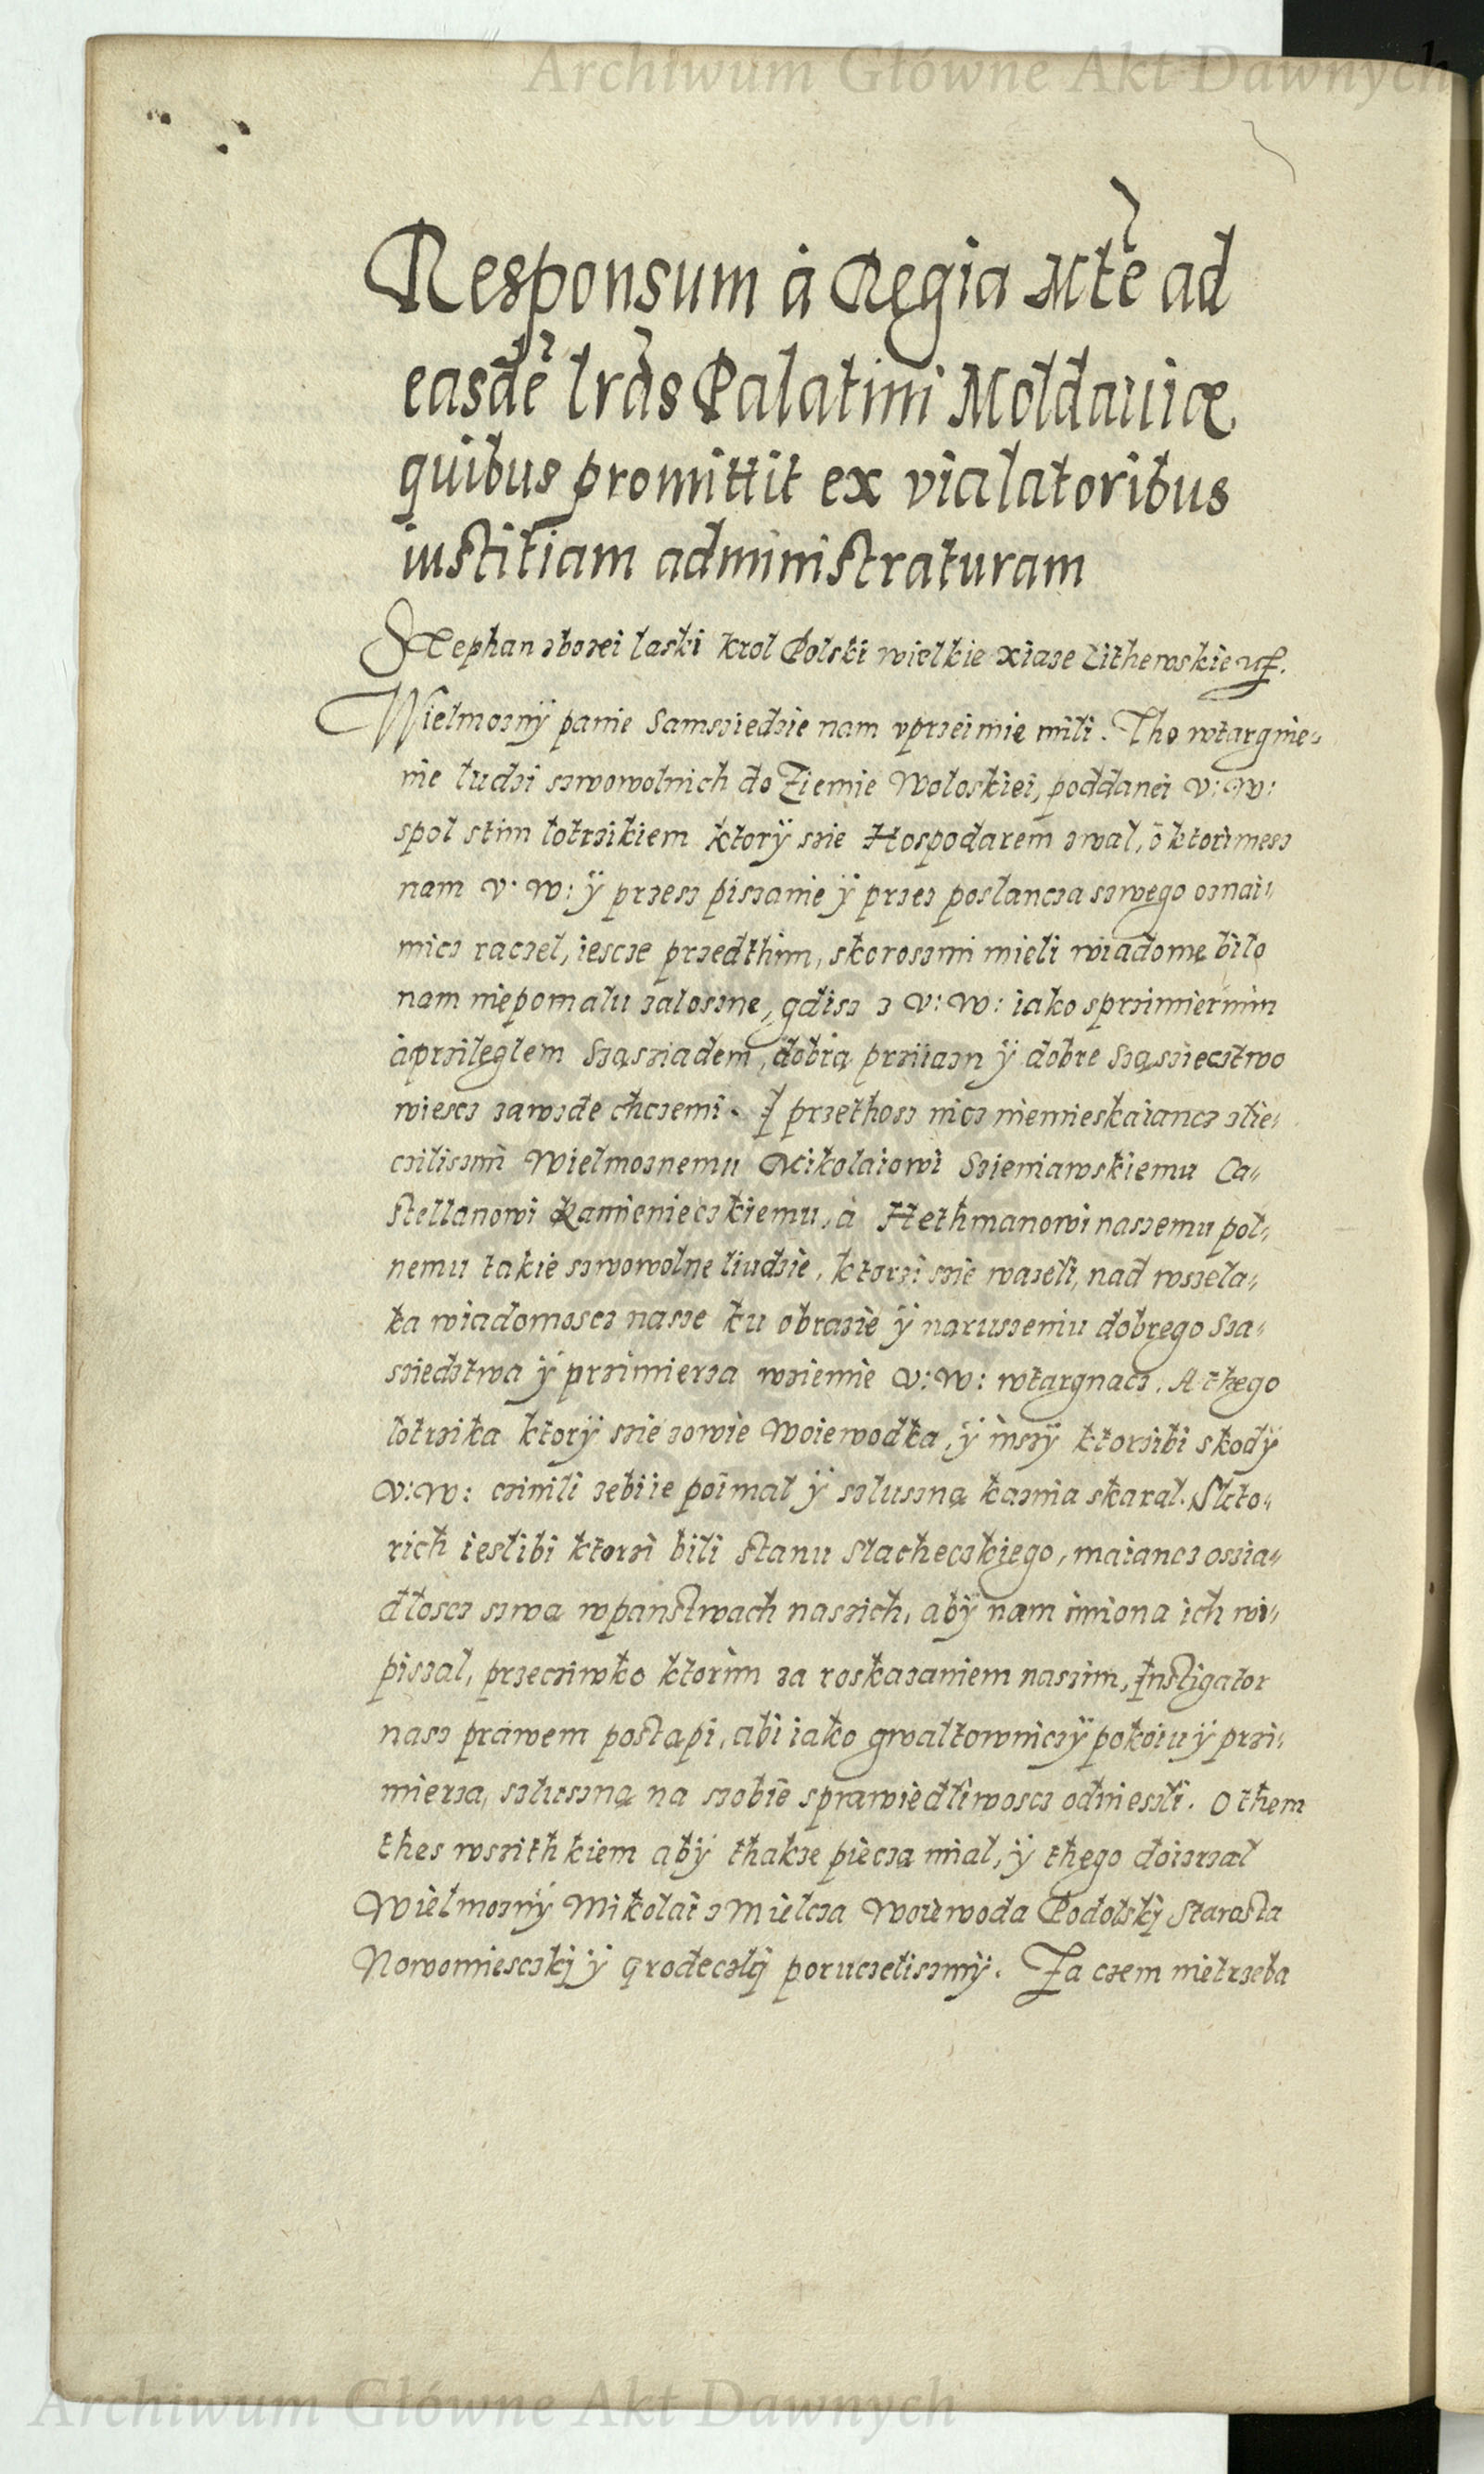 Archiwum Główne Akt Dawnych
Responsum à Regia Mtẽ ad
easdẽ lrãs Palatini Moldauiæ
quibus promittit ex vialatoribus
iustitiam administraturam
Stephan zbozei laski krol Polski wielkie xiaze Lithewskie
Wielmozny panie Samsziedzie nam vprzeimie mili. Tho wtargnie-
nie ludzi szwowolnich do Ziemie Woloskiei, poddanei V: W:
spol stim lotrzikiem ktory szie Hospodarem zwal, o ktorimesz
nam V: W: y przesz piszanie y przez poslancza szwego oznai-
micz raczel, iescze przedthim, skoroszmi mieli wiadome bilo
nam niepomalu zaloszne, gdisz z V: W: iako sprzimiernim
aprzileglem Sząsziadem, dobrą prziiazn y dobre Sząsziecztwo
wiescz zawzde chczemi. I przethosz nicz niemieskaiancz zlie-
cziliszmi Wielmoznemu Mikolaiowi Szieniawskiemu Ca-
stellanowi Kamienieczkiemu, a Hethmanowi naszemu pol-
nemu takie szwowolne liudzie, ktorzi szie wazeli, nad wszela-
ka wiadomoscz nasze ku obrazie y naruszeniu dobrego Sza-
sziedztwa y przimierza wziemie V: W: wtargnacz. A thego
lotrzika ktory szie zowie Woiewodka, y inszy ktorzibi skody
V: W: czinili zebi ie poimal y szluszną kaznia skaral. Skto-
rich ieslibi ktorzi bili stanu Slacheczkiego, maiancz oszia-
dloscz szwa wpanstwach naszich, aby nam imiona ich wi-
piszal, przecziwko ktorim za roskazaniem naszim, Instigator
nasz prawem postąpi, abi iako gwaltowniczy pokoiu y przi-
mierza, szluszną na szobie sprawiedliwoscz odnieszli. O them
thes wszithkiem aby thakze pieczą mial, y thego doizrzal
Wielmozny Mikolai z Mielcza Woiewoda Podolsky Starosta
Nowomiesczkj y grodeczkj poruczeliszmy. Za czem nietrzeba
Archiwum Główne Akt Dawnych